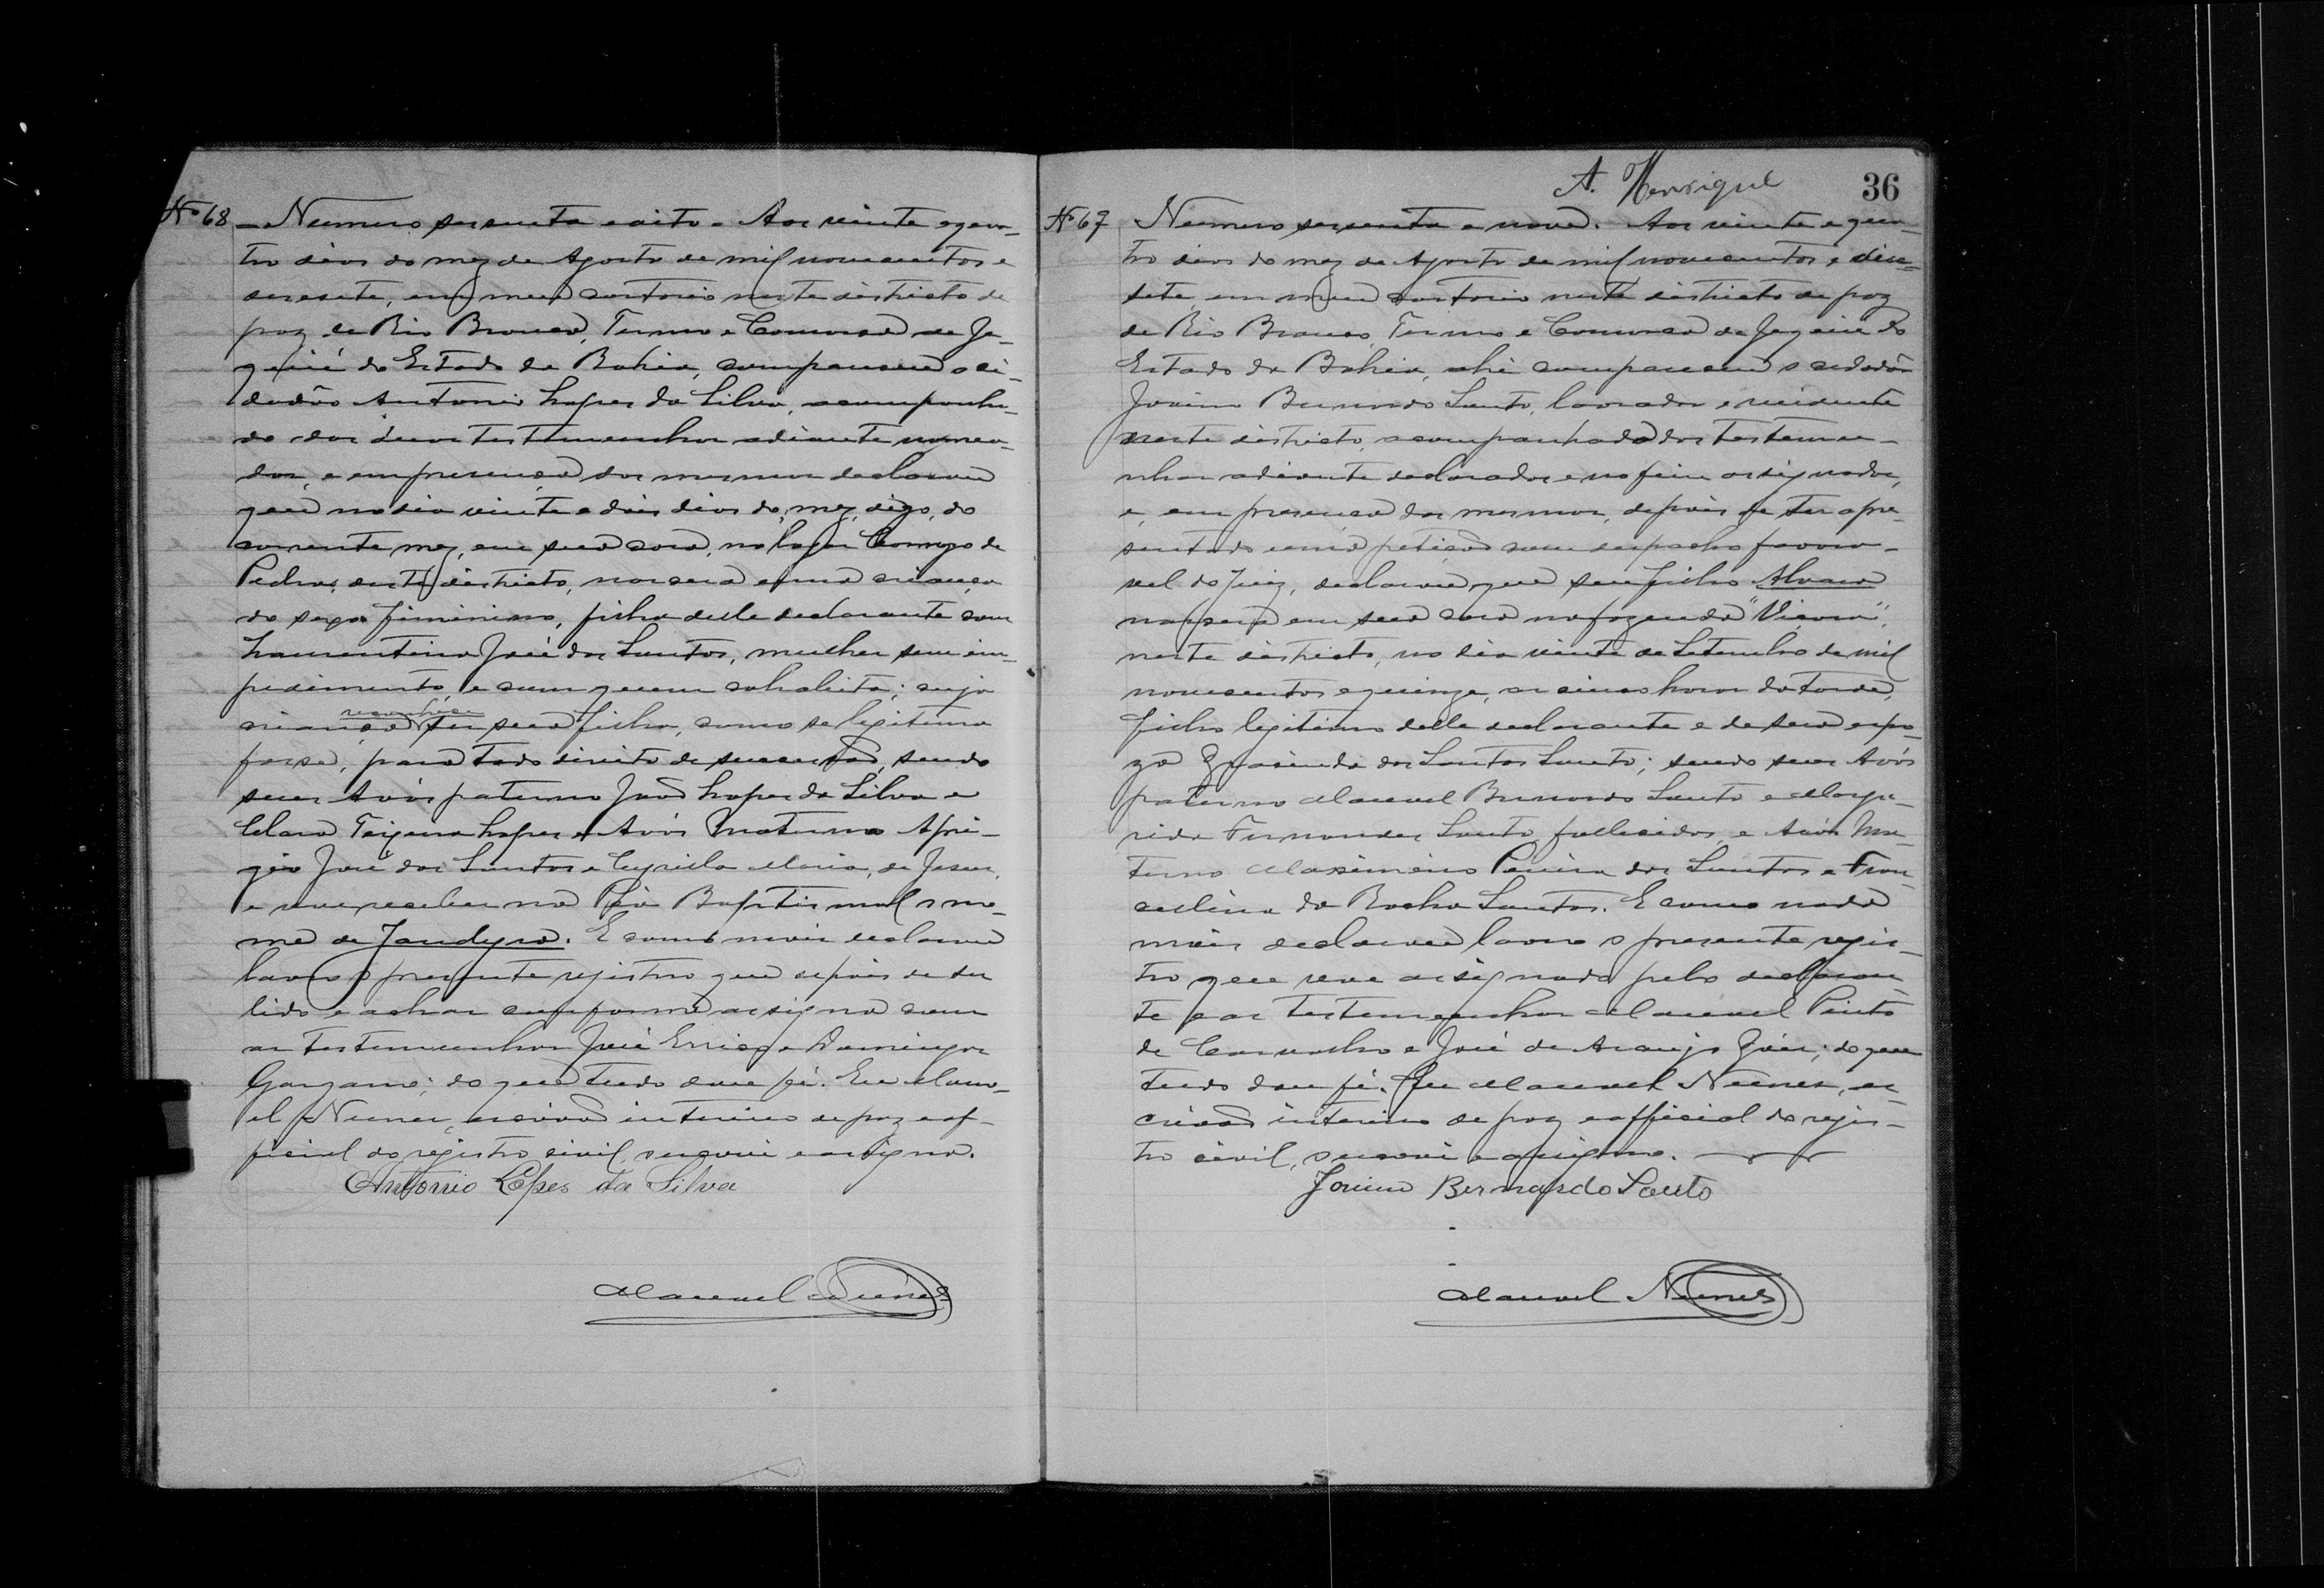 Nº 68 — Numero sessenta e oito - Aos vinte e qua-
tro dias do mez de Agosto de mil novecentos e
desesete, em meu cartorio neste districto de
paz de Rio Branco, Termo e Comarca de Je-
quié do Estado da Bahia, compareceu o ci-
dadão Antonio Lopes da Silva, acompanha-
do das duas testemunhas adiante nomea-
das, e em presença das mesmas declarou
que no dia vinte e dois dias do mez, digo, do
corrente mez, em sua casa, no logar Campo de
Pedras, deste districto, nascera uma criança
do sexo feminino, filha delle declarante com
Laurentina José dos Santos, mulher sem im-
pedimento, e com quem cohabita; cuja
reconhece
criança ser sua filha, como se legitima
fosse, para todo direito de successão, sendo
seus Avós paterno João Lopes da Silva e
Clara Teixeira Lopes e Avós Materno Apri-
gio José dos Santos e Cyrilla Maria de Jesus,
e vae receber na Pia Baptismal o no-
me de Jandyra. E como mais declarou
lavro o presente registro que depois de ser
lido e achar comforme assigna com
as testemunhas José Errico e Domingos
Gargano; do que tudo dou fé. Eu Mano-
el Nunes, escrivão interino de paz e of-
ficial do registro civil, escrevi e assigno.
Antonio Lopes da Silva
Manoel Nunes
A. Henrique 36
Nº 69 Numero sessenta e nove. Aos vinte e qua-
tro dias do mez de Agosto de mil novecentos e dese-
sete em meu cartorio neste districto de paz
de Rio Branco, Termo e Comarca de Jequié do
Estado da Bahia, ahi compareceu o cidadão
Jovino Bernardo Souto, lavrador e residente
neste districto, acompanhado das testemu-
nhas adiante declaradas e no fim assignadas,
e, em presença das mesmas, depois de ter apre-
sentado uma petição com despacho favora-
vel do Juiz, declarou que seu filho Alvaro
nascera em sua casa na fazenda "Viçosa",
neste districto, no dia vinte de Setembro de mil
novecentos e quinze, as cinco horas da tarde,
filho legitimo delle declarante e de sua espo-
za Grasinda dos Santos Souto; sendo seus Avós
paterno Manoel Bernardo Souto e Marga-
rida Fernandes Souto, fallecidos, e Avós Ma-
terno Maximino Pereira dos Santos e Fran-
cellina da Rocha Santos. E como nada
mais declarou lavro o presente regis-
tro que vae assignado pelo declaran-
te e as testemunhas Manoel Pinto
de Carvalho e José de Araujo Góes; do que
tudo dou fé. Eu Manoel Nunes, es-
crivão interino de paz e official do regis-
tro civil, o escrevi e assigno.
Jovino Bernardo Souto
Manoel Nunes